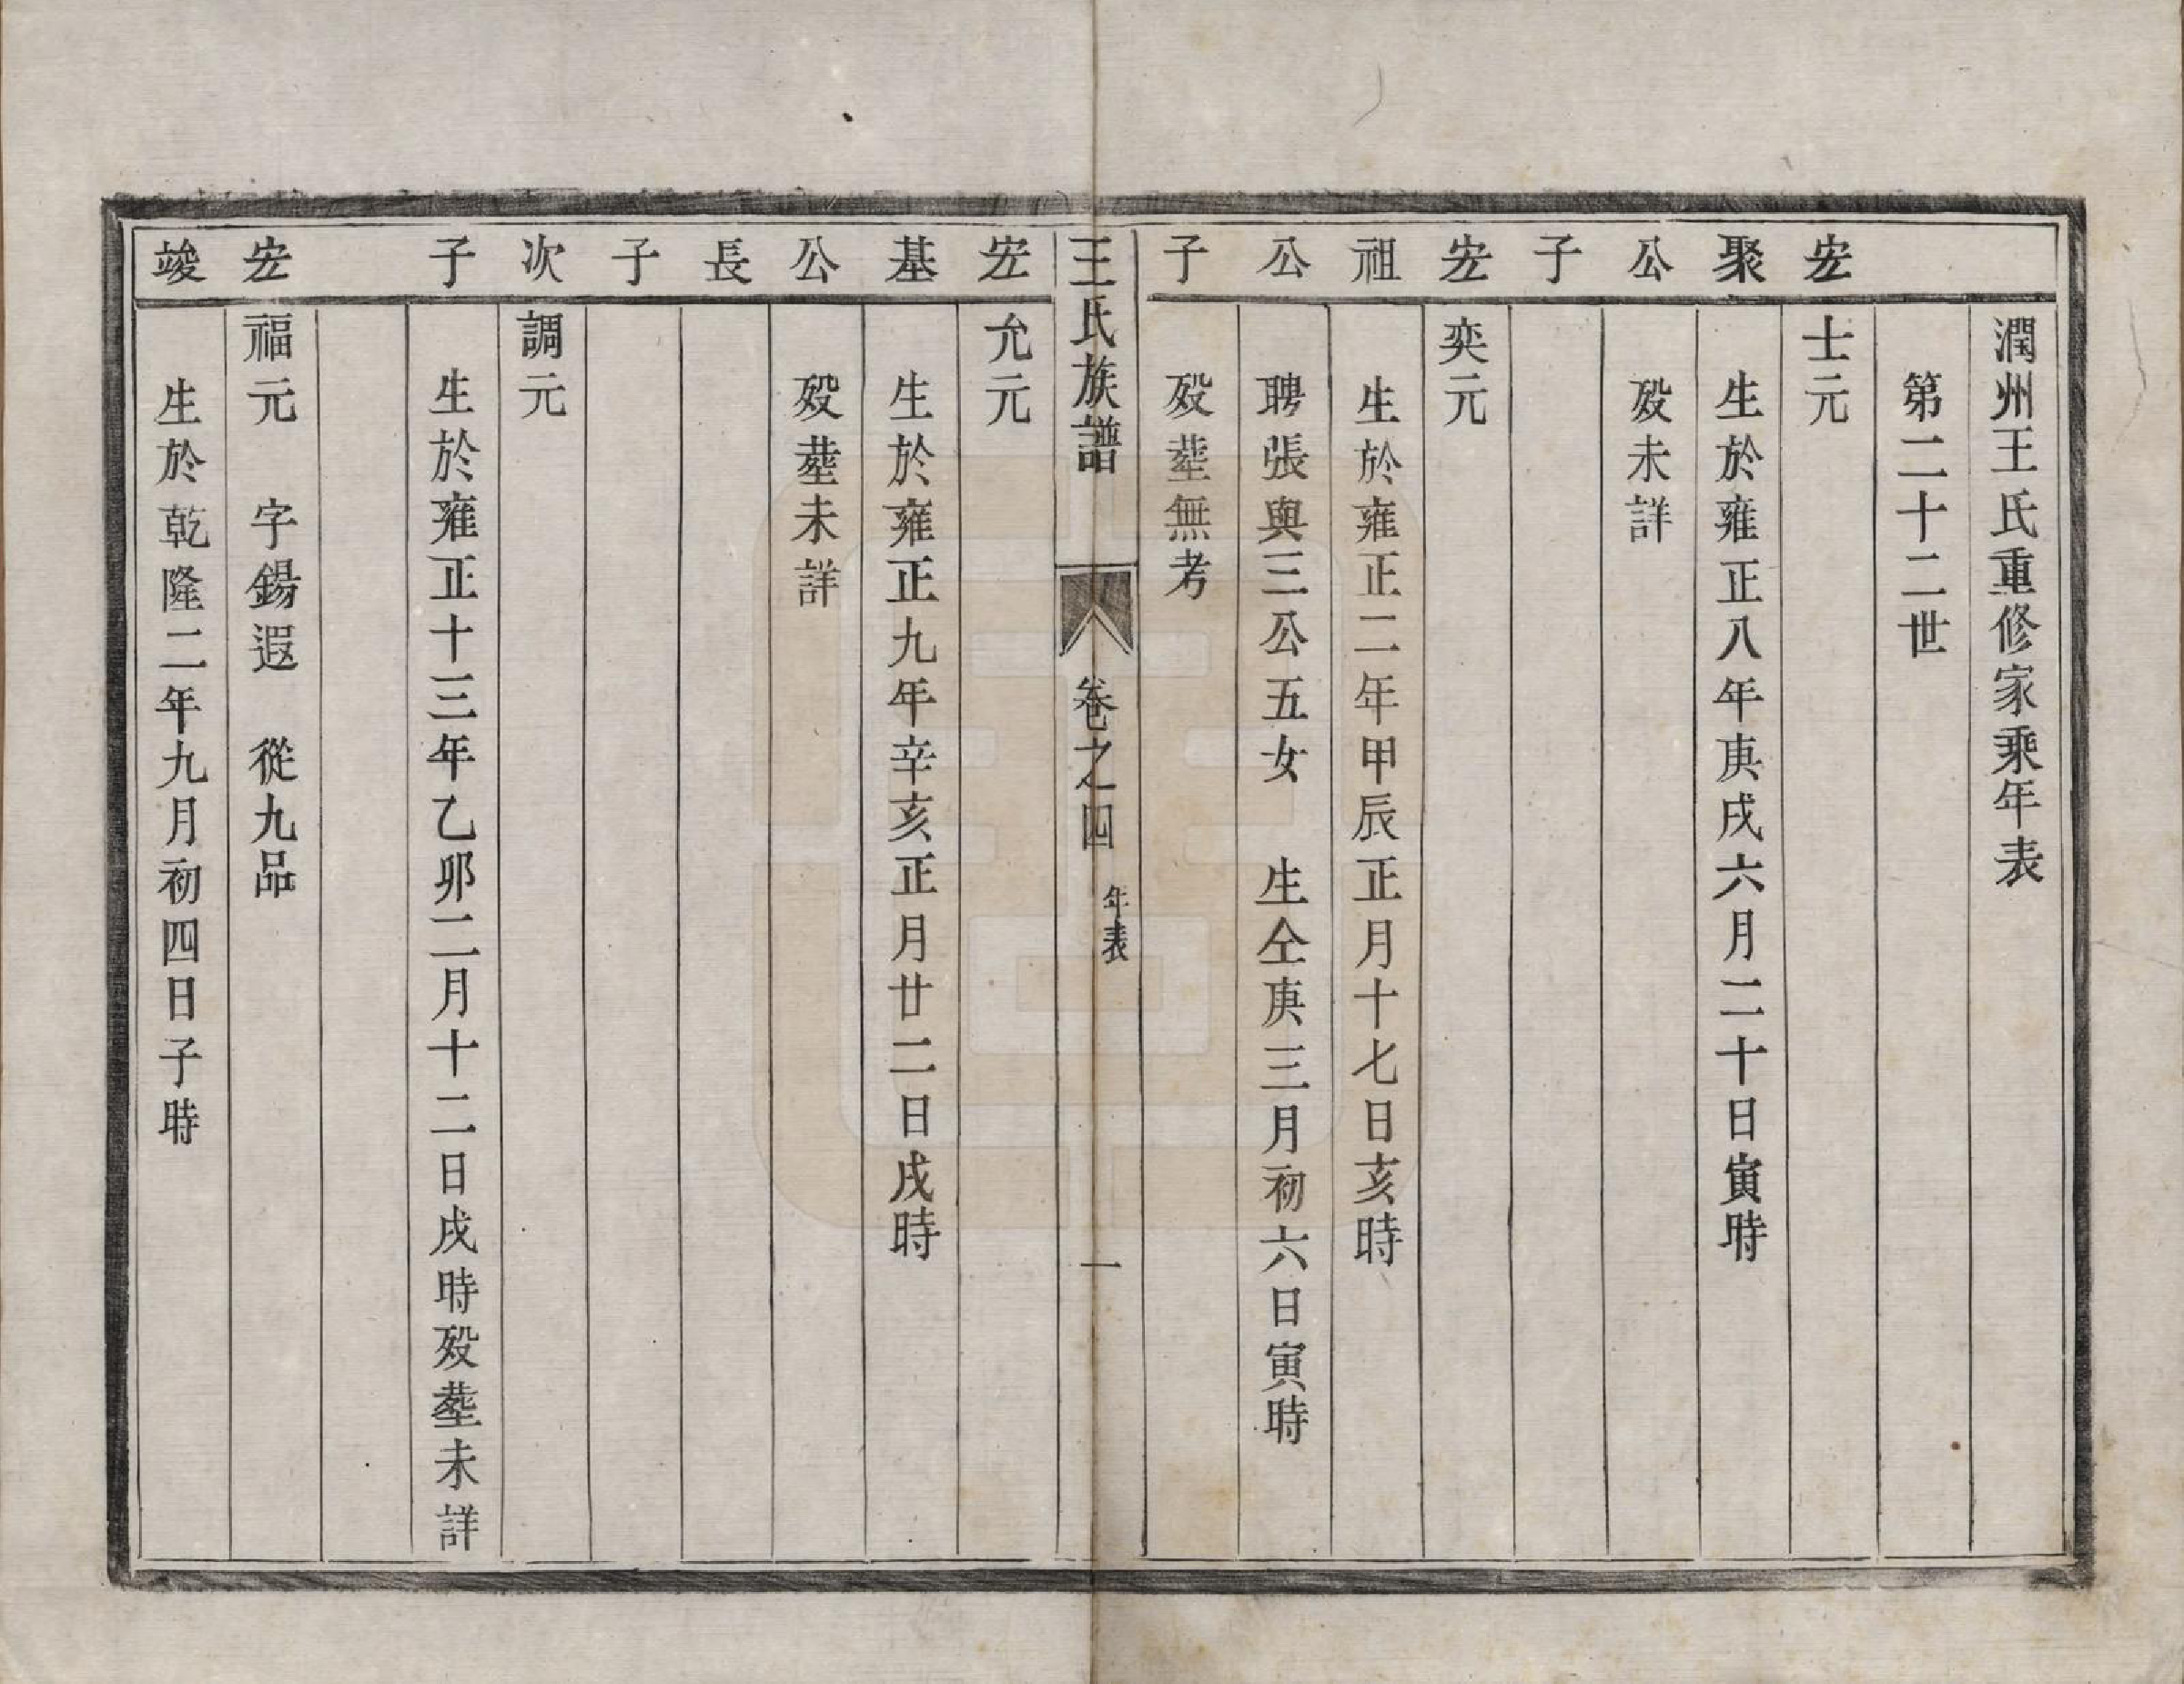 潤州王氏重修家乘年表
第二十二世
宏聚公子
士元
生於雍正八年庚戌六月二十日寅時
歿未詳
宏祖公子
奕元
生於雍正二年甲辰正月十七日亥時
聘張與三公五女　生仝庚三月初六日寅時
歿塟無考
王氏族譜
卷之四
年表
一
宏基公長子
允元
生於雍正九年辛亥正月廿二日戌時
歿塟未詳
次子
調元
生於雍正十三年乙卯二月十二日戌時歿塟未詳
宏竣
福元　字錫遐　從九品
生於乾隆二年九月初四日子時